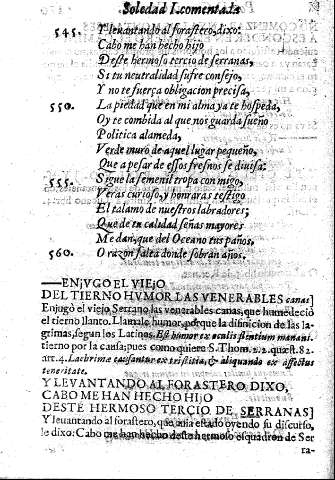 Soledad I. comentada
545. Y levantando al forastero, dixo:
Cabo me han hecho hijo
Deste hermoso tercio de serranas,
Si tu neutralidad sufre consejo,
Y no te fuerça obligacion precisa,
550. La piedad que en mi alma ya te hospeda,
Oy te combida al que nos guarda sueño
Politica alameda,
Verde muro de aquel lugar pequeño,
Que a pesar de essos fresnos se divisa:
555. Sigue la femenil tropa con migo,
Veras curioso, y honraras testigo
El talamo de nuestros labradores;
Que de tu calidad señas mayores
Me dan, que del Oceano tus paños,
560. O razon falta donde sobran años.
ENJUGO EL VIEJO
DEL TIERNO HVMOR LAS VENERABLES canas]
Enjugò el viejo Serrano las venerables canas, que humedeciò
el tierno llanto. Llamale humor, porque la difinicion de las la-
grimas, segun los Latinos. Est humor ex oculis sentium manans.
tierno por la causa; pues como quiere S. Thom. 2.2. quæst. 82.
art. 4. Lachrimæ causantur ex tristitia, & aliquando ex affectus
teneritate.
Y LEVANTANDO AL FORASTERO DIXO,
CABO ME HAN HECHO HIJO
DESTE HERMOSO TERCIO DE SERRANAS]
Y levantando al forastero, que auia estado oyendo su discurso,
le dixo: Cabo me han hecho deste hermoso esquadron de Ser
ra-